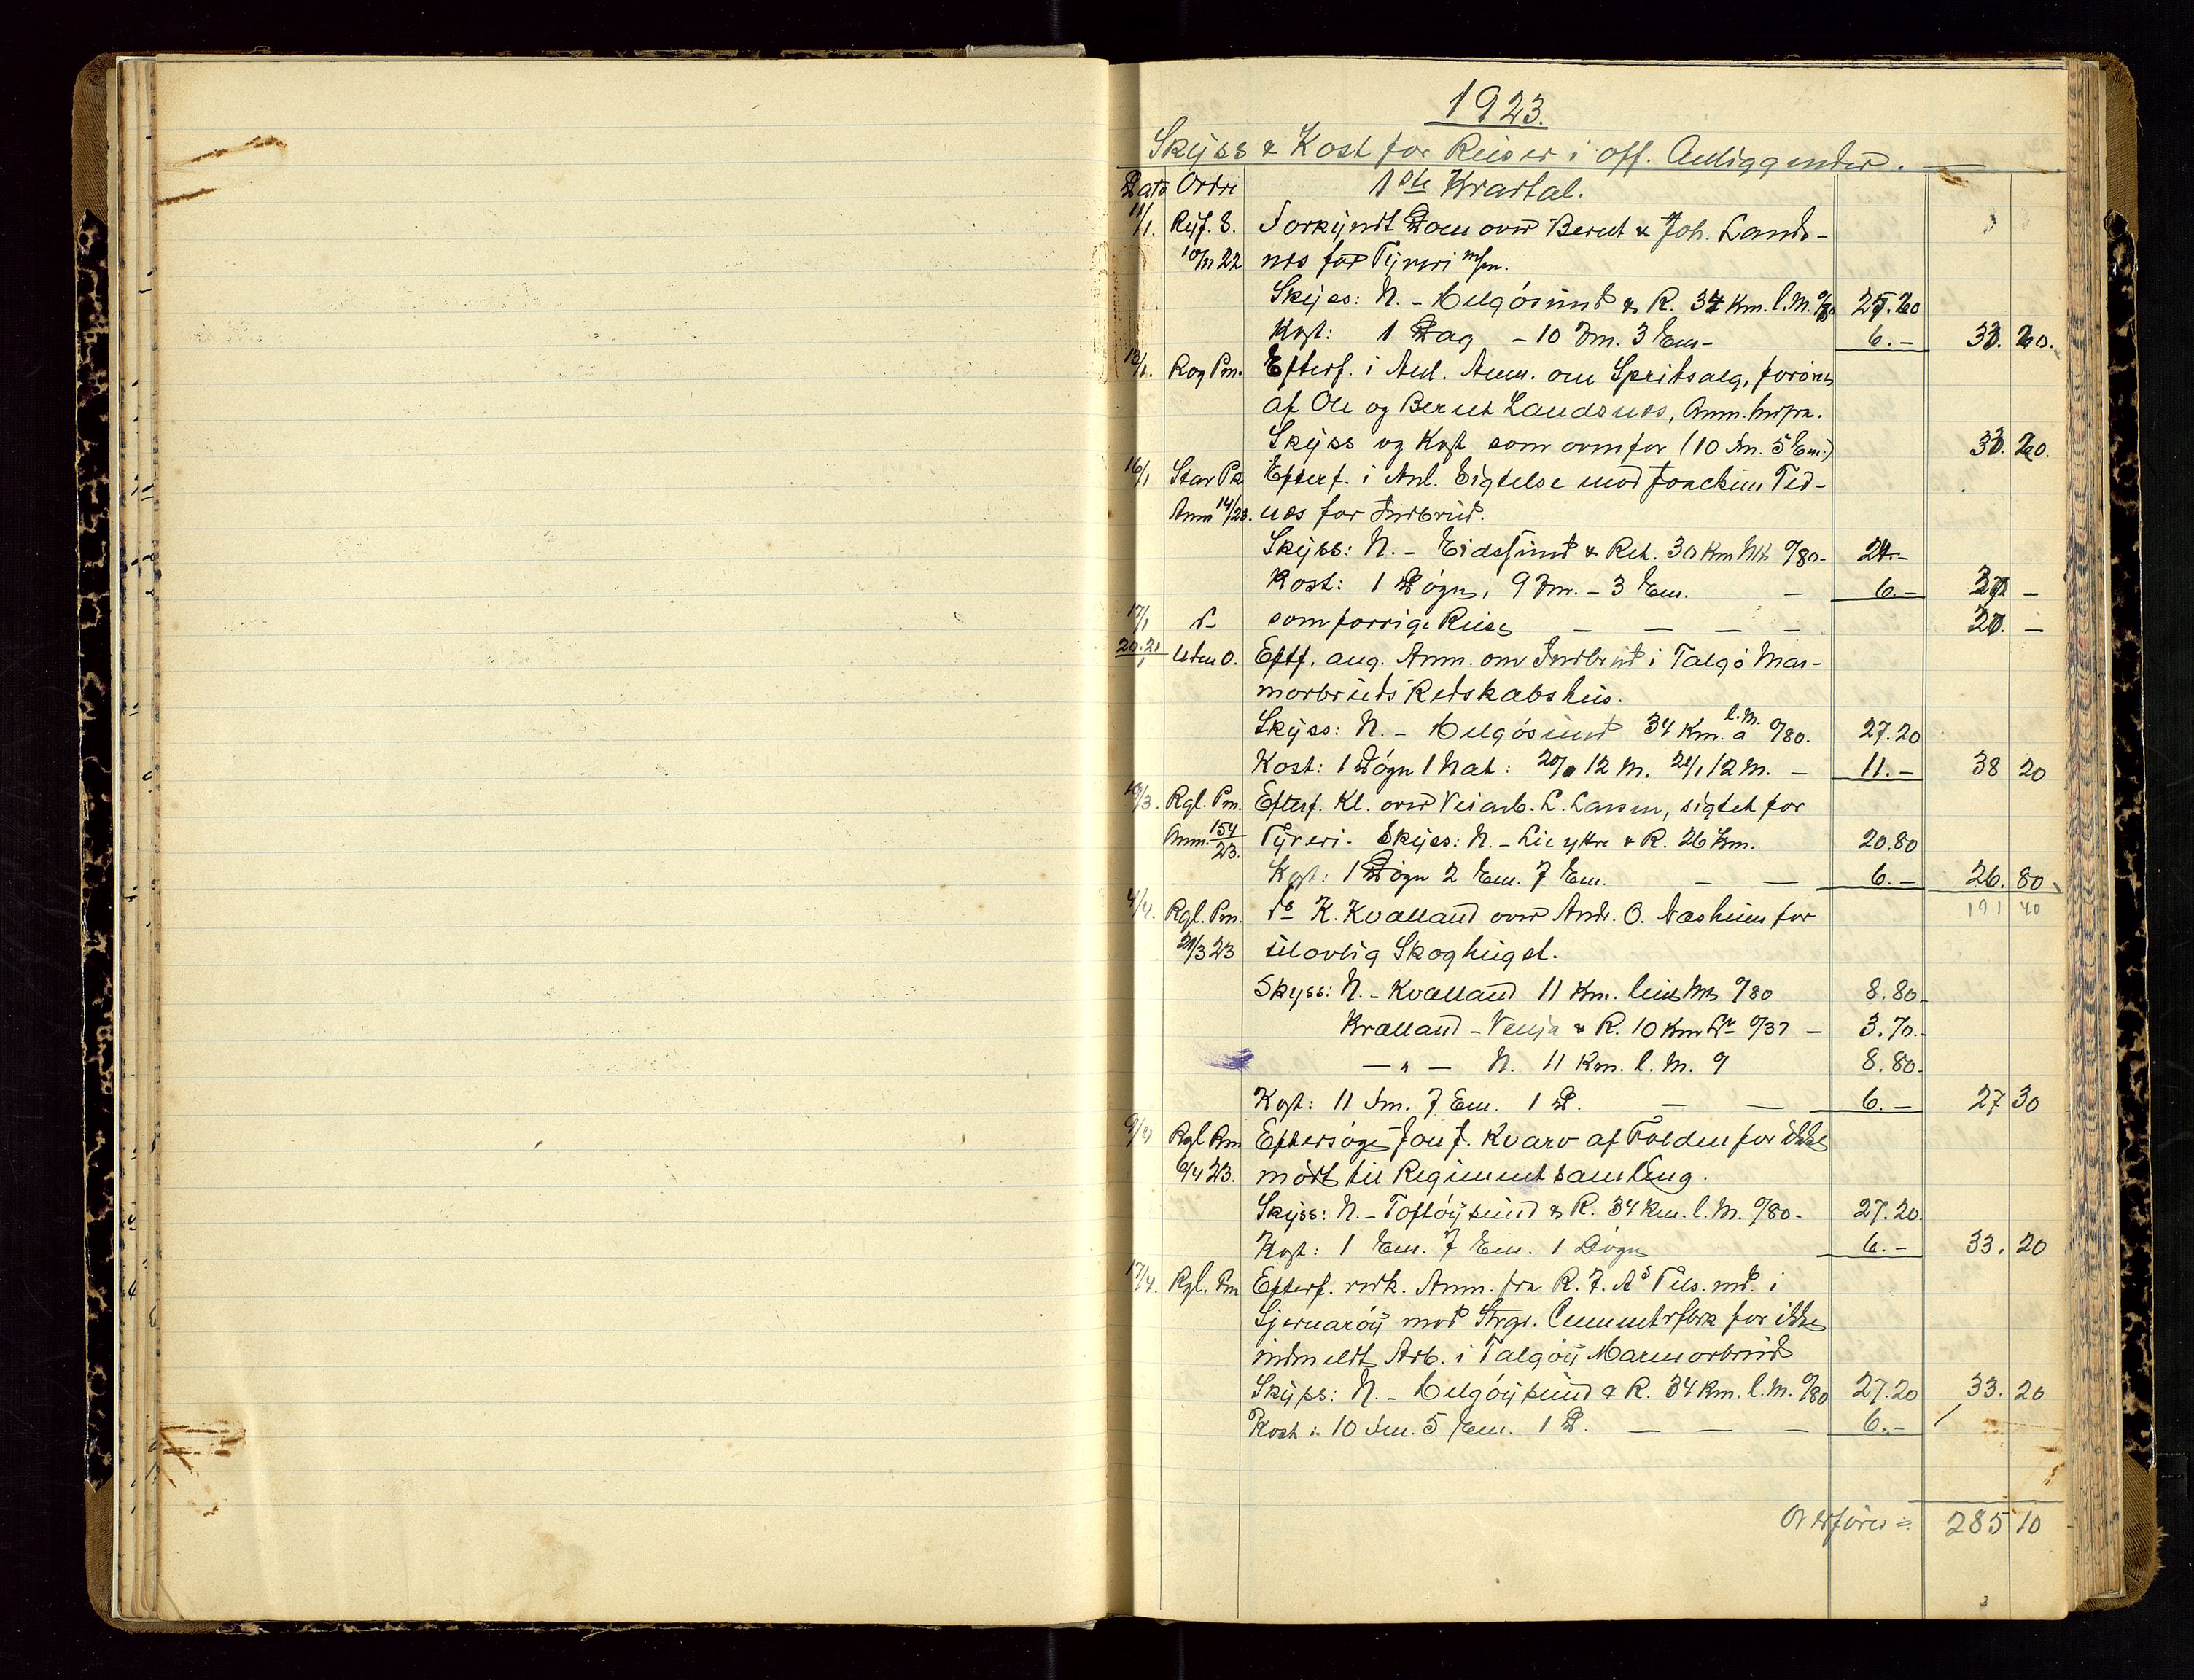 1923.
Skyss & Kost for Reiser i off. Anliggender. —
Dato Ordre 1ste Kvartal.
11/1. Ryf. S. Forkyndt Dom over Bernt & Joh. Lands-
10/11 22 nes for Tyveri m/m.
Skyss: N. - Helgøsund & R. 34 Km. l.M. 0/80 27.20
Kost: 1 Dag - 10 Fm. 3 Em- 6.- 33. 20.
13/1. Rog Pm. Efterf. i Anl. Anm. om Spritsalg, forøvet
af Ole og Bernt Landsnes, Anm.
Skyss og Kost som ovenfor (10 Fm. 5 Em.) 33. 20.
16/1 Stav Pk Efterf. i Anl. Sigtelse mod Joachim Ted-
Anm 14/23. nes for Indbrud.
Skyss: N. - Eidssund & Ret. 30 Km Mb 0/80- 24.-
Kost: 1 Døgn, 9 Fm. - 3 Em. — 6.- —
17/1 d- som forrige Reise — — — — —
20.21/1 Uden O. Eftf. ang. Anm. om Indbrud i Talgø Mar-
morbruds Redskabshus.
Skyss: N. - Helgøsund 34 Km. l.M. a 0/80. 27.20
Kost: 1 Døgn 1 Nat: 20/1 12 M. 21/1 12 M. - 11.- 38 20
19/3. Rgl. Pm. Efterf. Kl. over Veiarb. L. Larsen, sigtet for
Anm. 154/23. Tyveri. Skyss: N. - & R. 26 Km. 20.80
Kost: 1 Døgn 2 Em. 7 Em. — — 6.- 26. 80
191 40
4/4. Rgl. Pm. do K. Kvalland over Andr. O. Næsheim for
21/3 23 ulovlig Skoghugst.
Skyss: N. - Kvalland 11 Km. leiet Mb 0/80 8.80-
Kvalland - & R. 10 Km 0/37 - 3.70.-
— " — N. 11 Km. l.M. 8.80-
Kost: 11 Fm. 7 Em. 1 D. — — 6.- 27 30
9/4 Rgl Pm Eftersøge Jon J. Kvarv af Folden for ikke
6/4 23. mødt til Regimentsamling.
Skyss: N. - Toftøysund & R. 34 Km. l.M. 0/80- 27.20.
Kost: 1 Em. 7 Em. 1 Døgn 6.- 33. 20
17/4. Rgl. Pm Efterf. vedk. Anm. fra R. F. As Tils.md. i
Sjernarøy mod Cementvfbrk for ikke
indmeldt Arb. i Talgøy Marmorbrud
Skyss: N. - Helgøysund & R. 34 Km. l.M. 0/80 27.20 33. 20
Kost: 10 Fm. 5 Em. 1 D. — — — 6.-
Overføres = 285 10